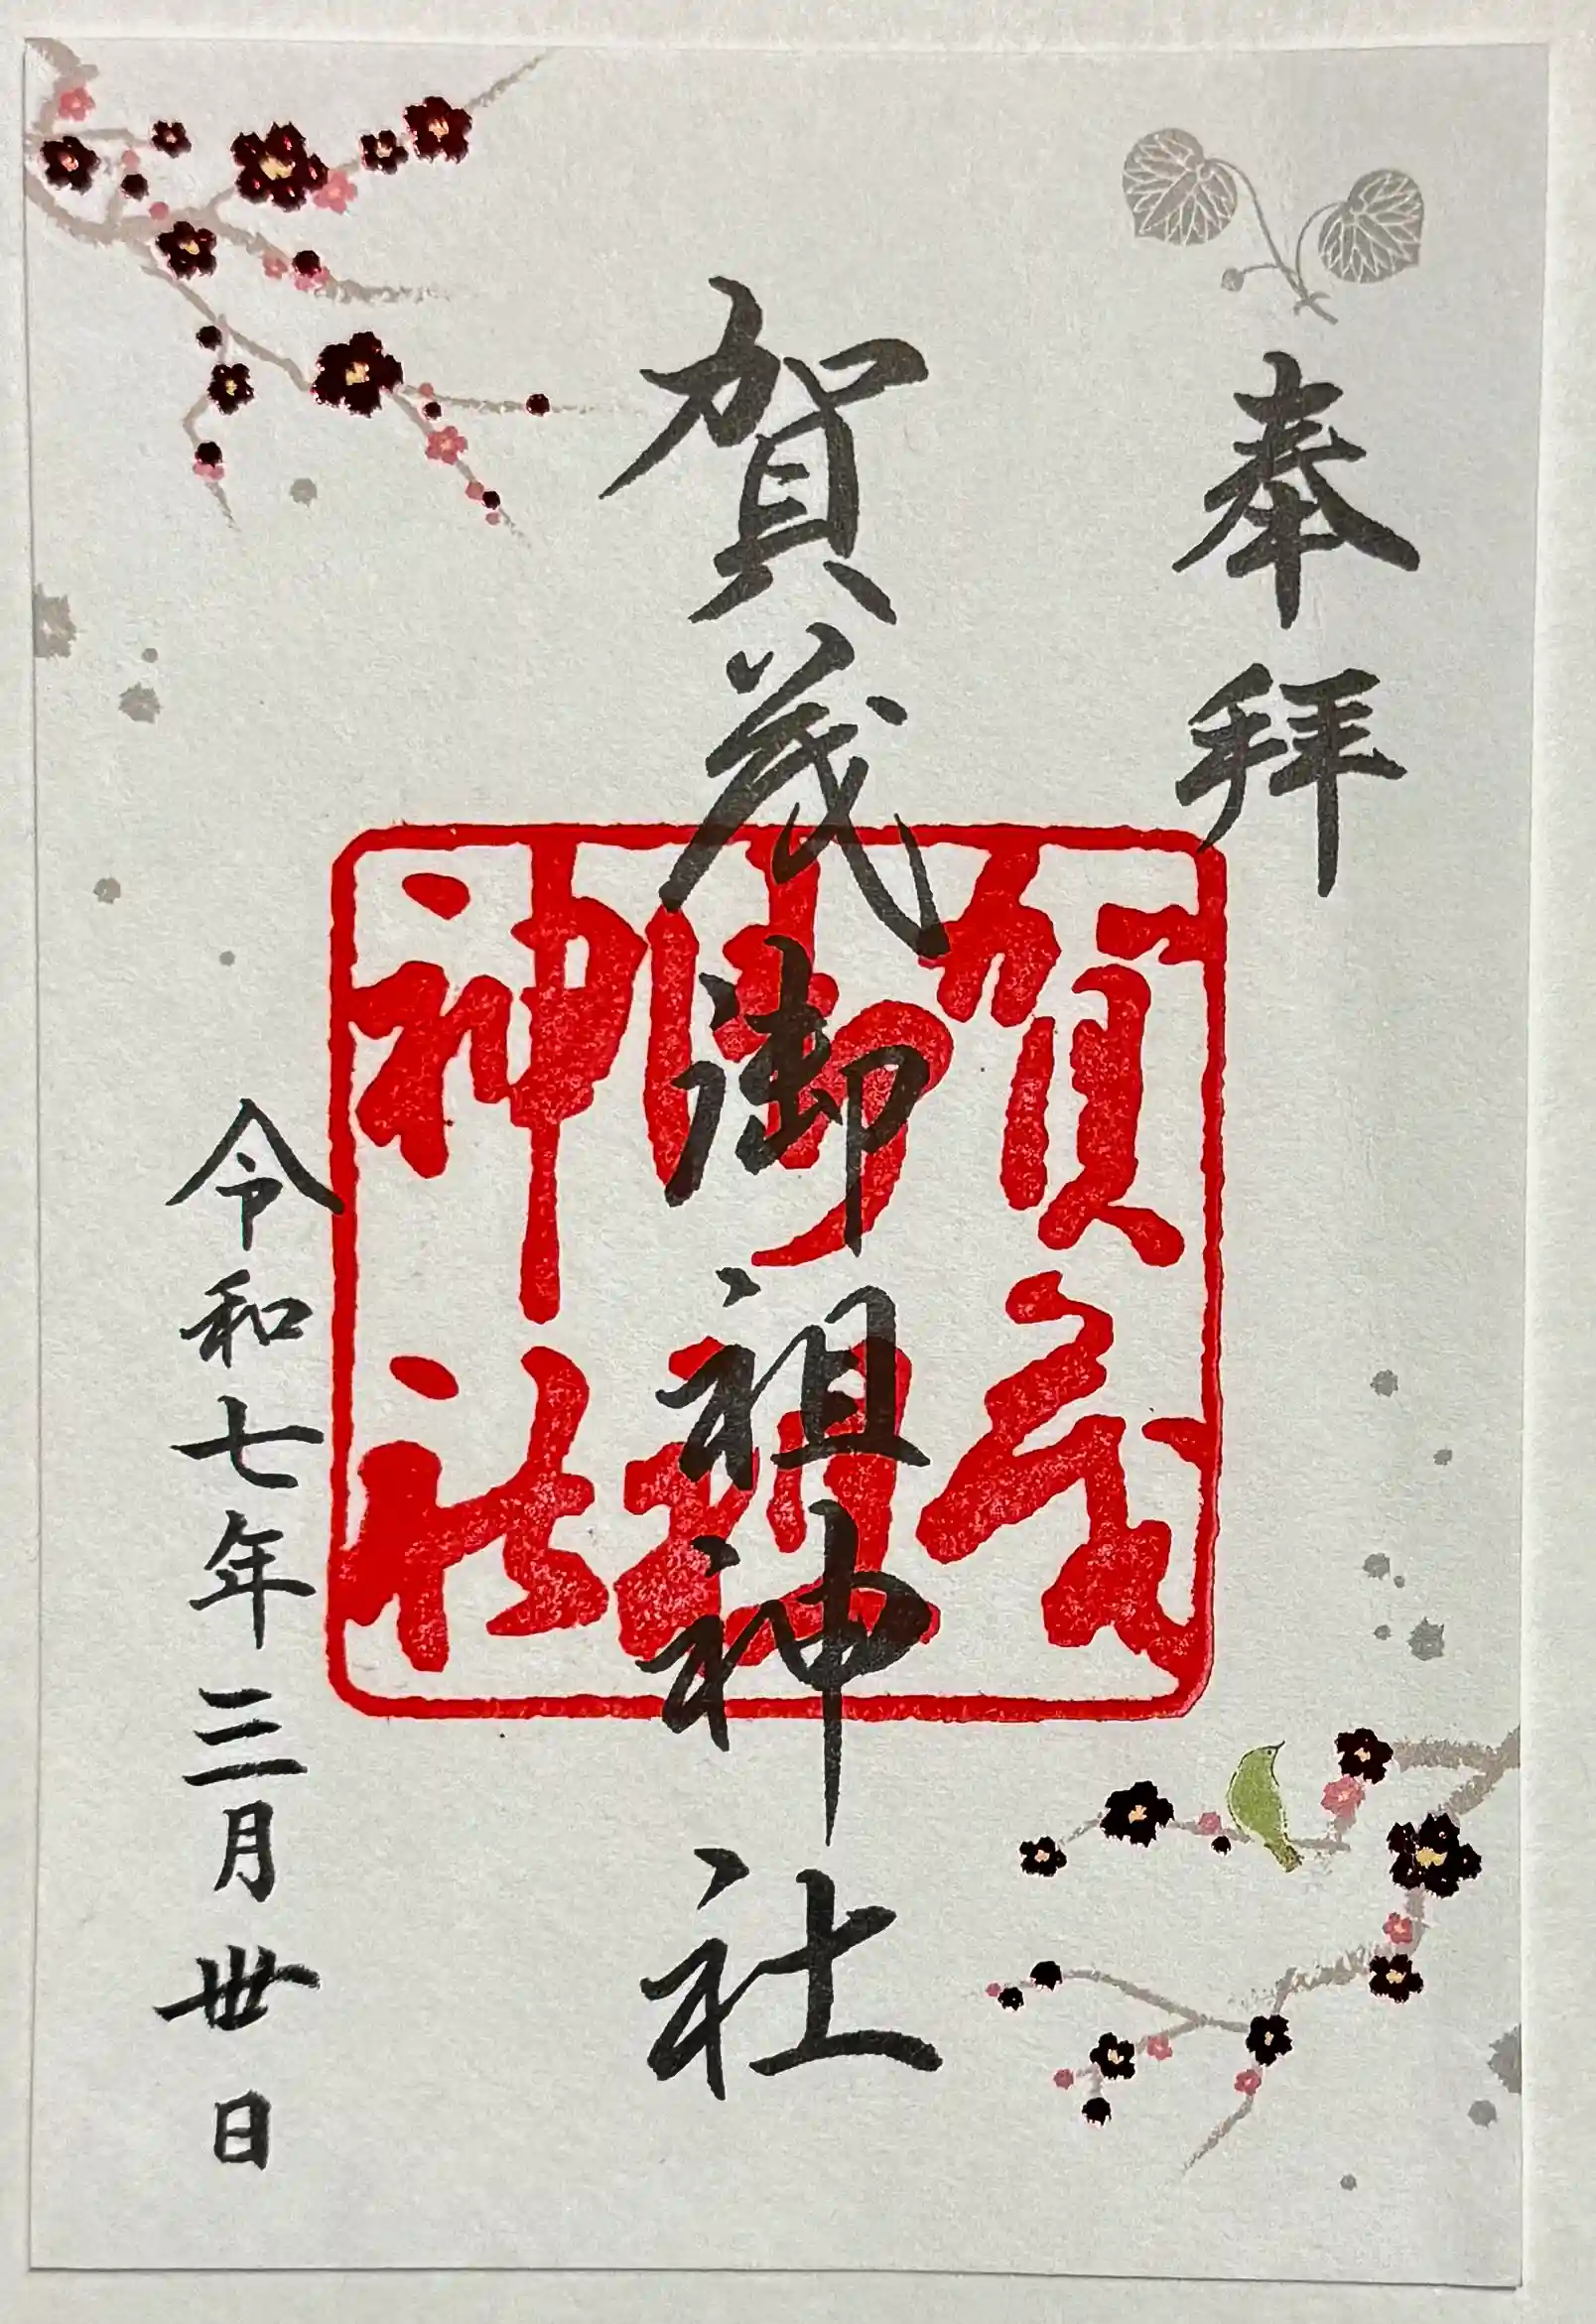 奉拝
賀茂御祖神社
賀茂
御祖
神社
令和七年三月卅日